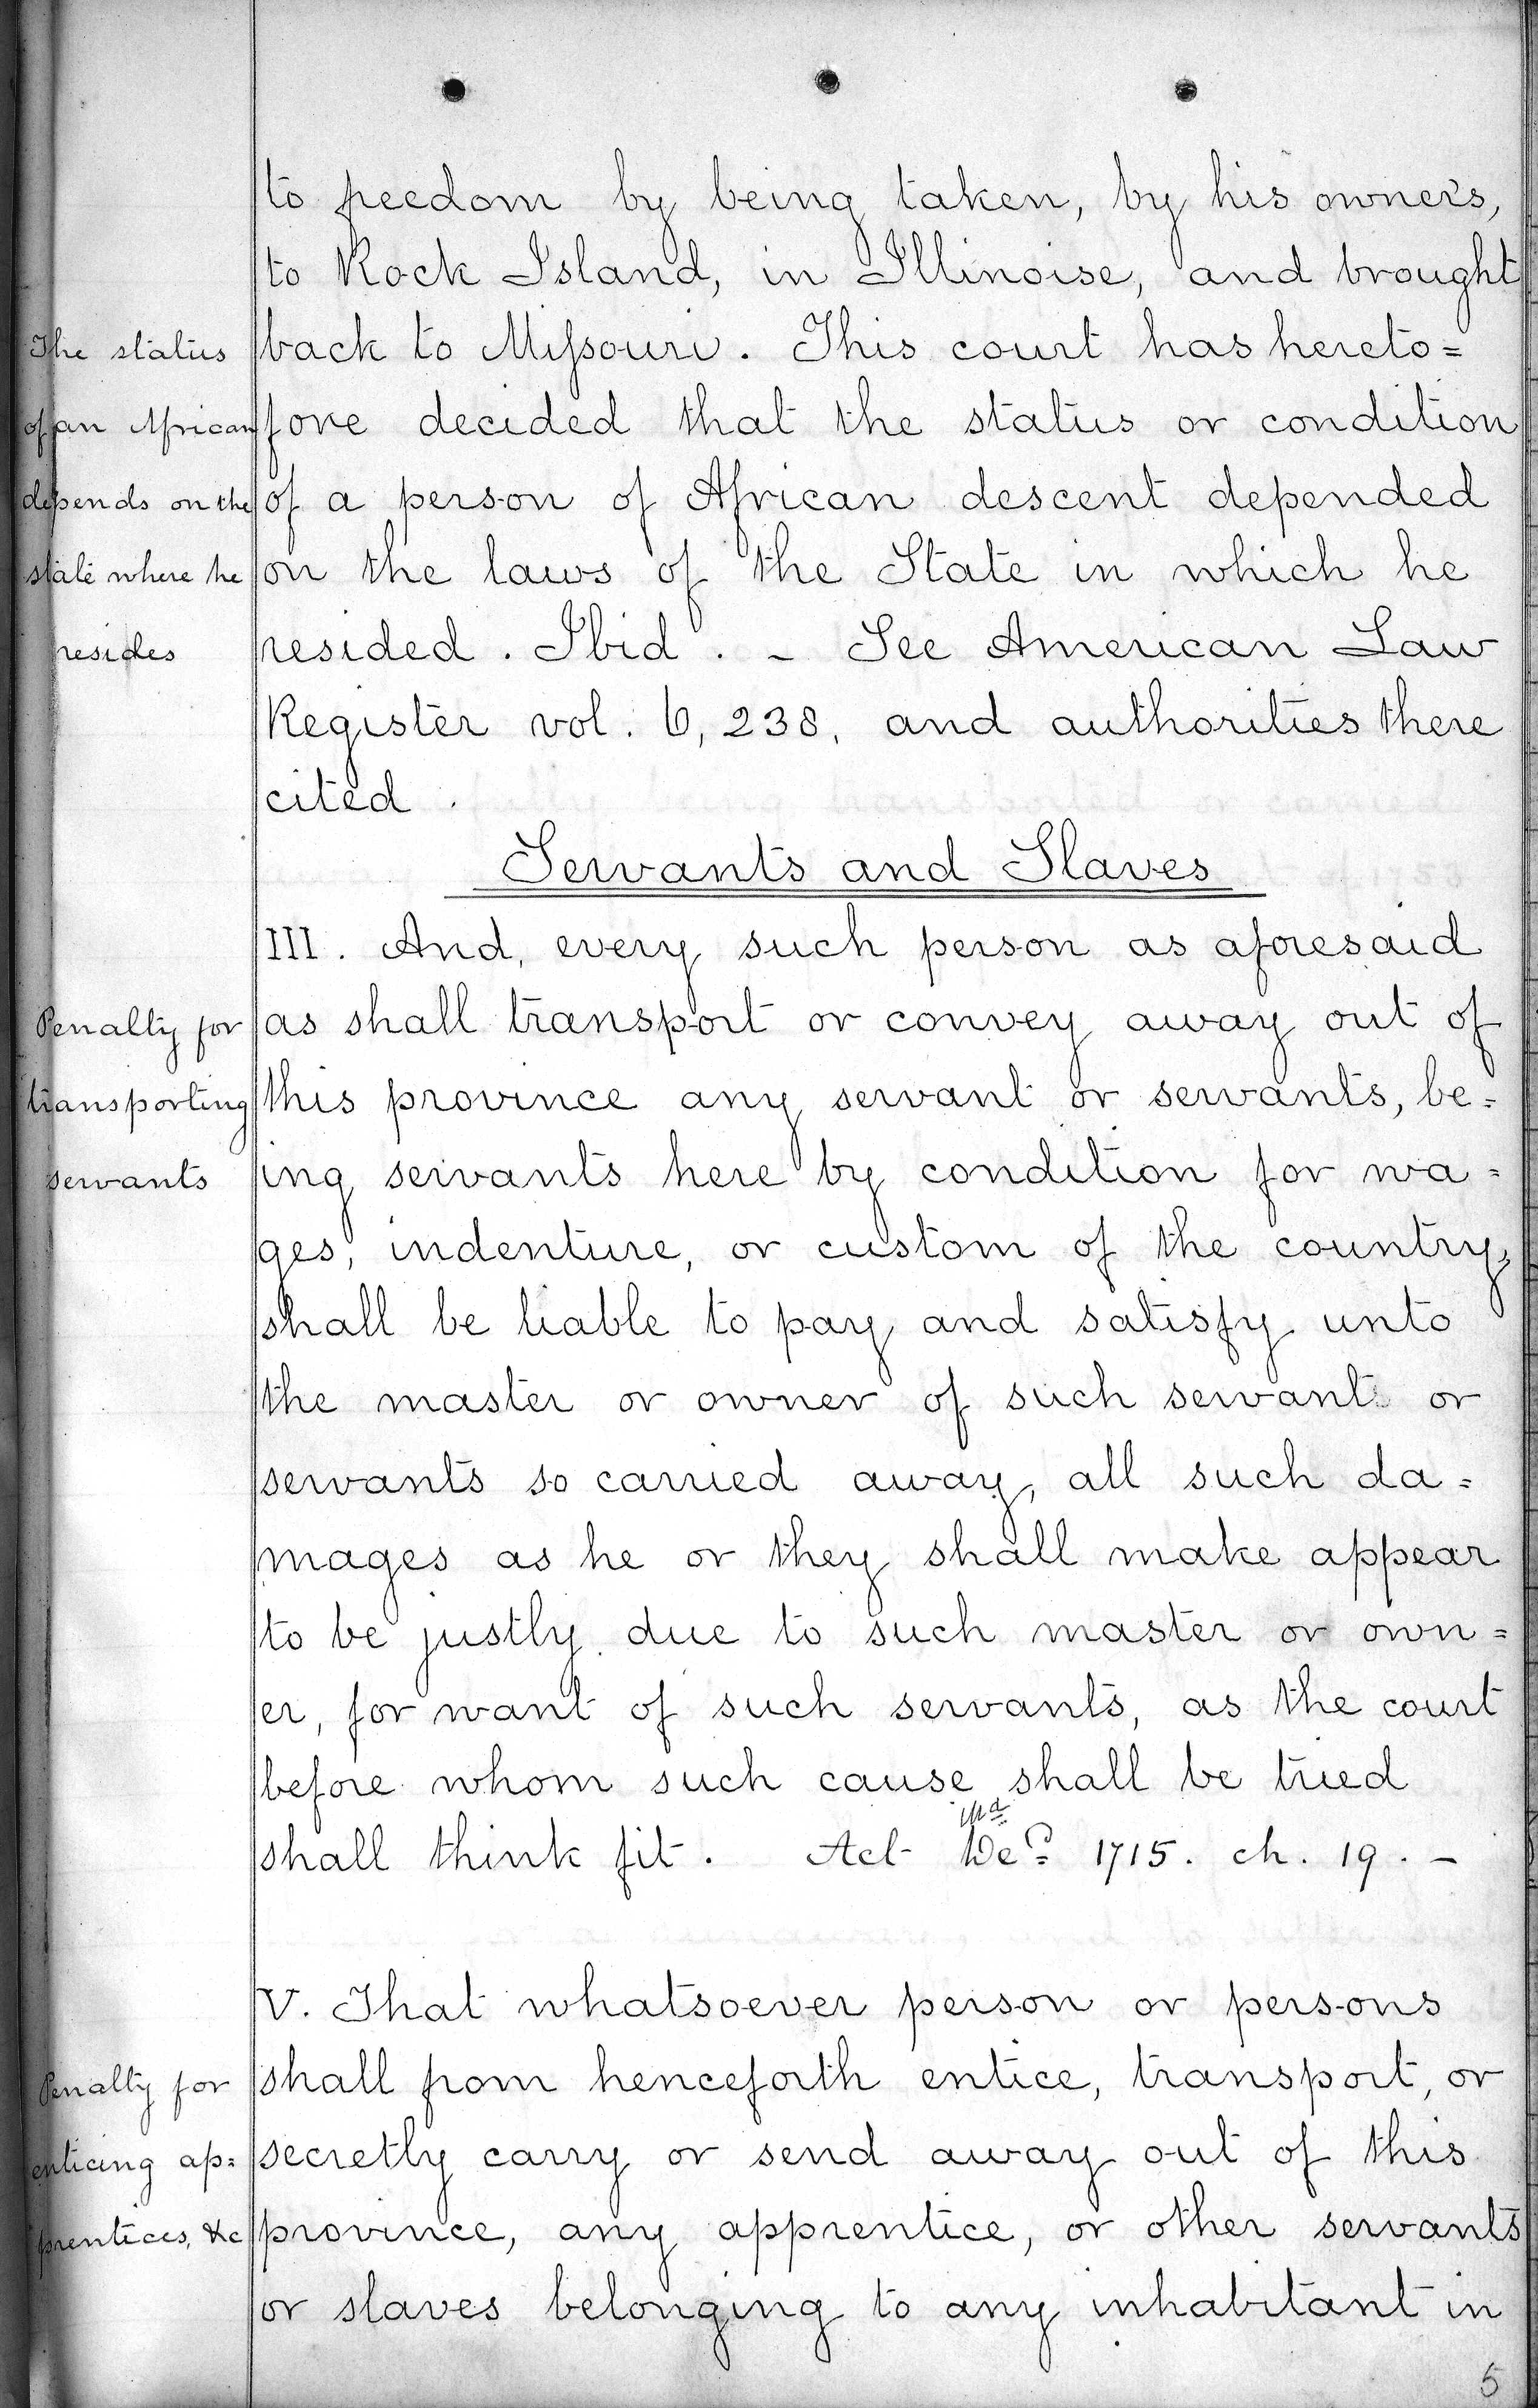 to freedom by being taken, by his owners,
to Rock Island, in Illinoise, and brought
back to Missouri. This court has hereto=
fore decided that the status or condition
of a person of African descent depended
on the laws of the State in which he
resided. Ibid. - See American Law
Register vol. 6, 238, and authorities there
cited.
The status
of an African
depends on the
state where he
resides
Servants and Slaves
III. And, every such person as aforesaid
as shall transport or convey away out of
this province any servant or servants, be=
ing servants here by condition for wa=
ges, indenture, or custom of the country,
shall be liable to pay and satisfy unto
the master or owner of such servant or
servants so carried away, all such da=
mages as he or they shall make appear
to be justly due to such master or own=
er, for want of such servants, as the court
before whom such cause shall be tried
shall think fit. Act Md 1715. ch. 19. -
Penalty for
transporting
servants
V. That whatsoever person or persons
shall from henceforth entice, transport, or
secretly carry or send away out of this
province, any apprentice, or other servants
or slaves belonging to any inhabitant in
Penalty for
enticing ap=
prentices, &c
5